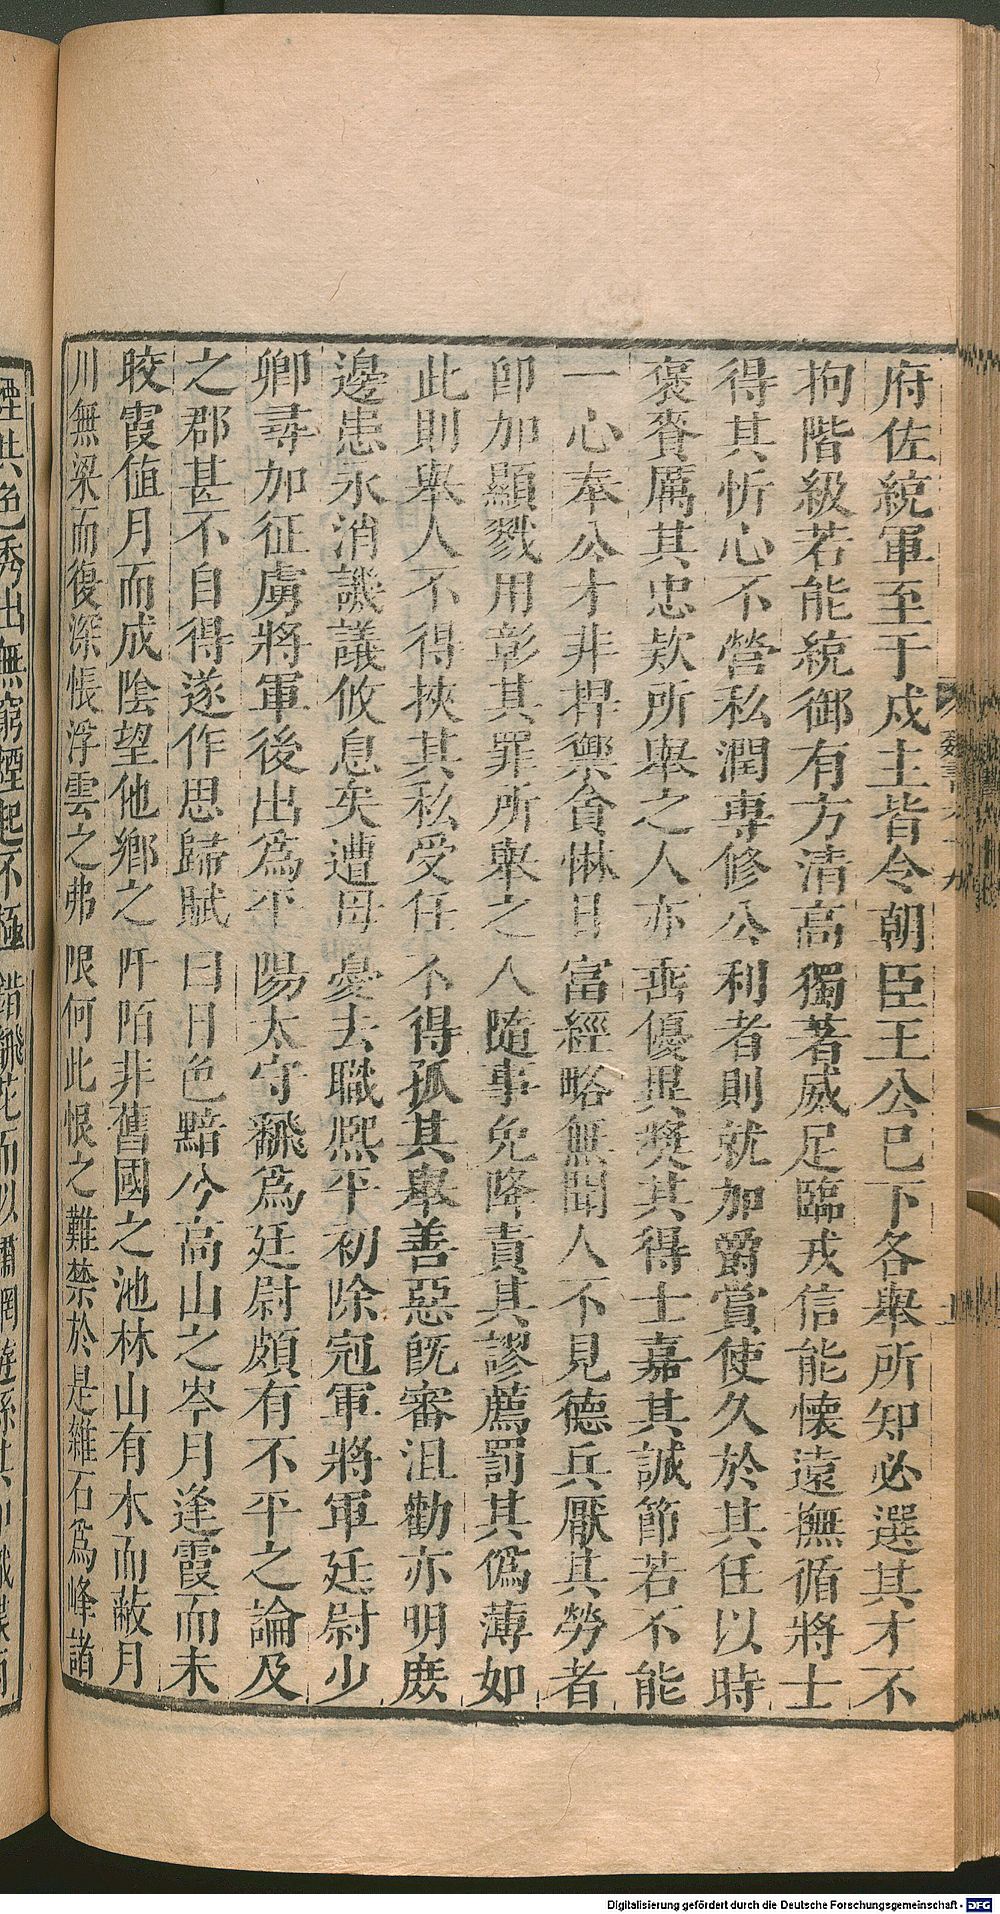 府佐統軍至于戍主皆令朝臣王公已下各舉所知必選其才不
拘階級若能統御有方清高獨著威足臨戎信能懷遠撫循將士
得其忻心不營私潤專修公利者則就加爵賞使久於其任以時
褒賚厲其忠欵所舉之人亦垂優異奬其得士嘉其誠節若不能
一心奉公才非捍禦貪惏日富經略無聞人不見德兵厭其勞者
卽加顯戮用彰其罪所舉之人隨事免降責其謬薦罰其僞薄如
此則舉人不得挾其私受任不得孤其舉善惡旣審沮勸亦明庶
邊患永消譏議攸息矣遭母憂去職熙平初除冠軍將軍廷尉少
卿尋加征虜將軍後出爲平陽太守飜爲廷尉頗有不平之論及
之郡甚不自得遂作思歸賦曰日色黯兮高山之岑月逢霞而未
晈霞値月而成陰望他鄉之阡陌非舊國之池林山有木而蔽月
川無梁而復深悵浮雲之弗限何此恨之難禁於是雜石爲峰諸
煙共色秀出無窮煙起不極錯飜花而以繡網遊絲其
Digitalisierung gefördert durch die Deutsche Forschungsgemeinschaft - DFG